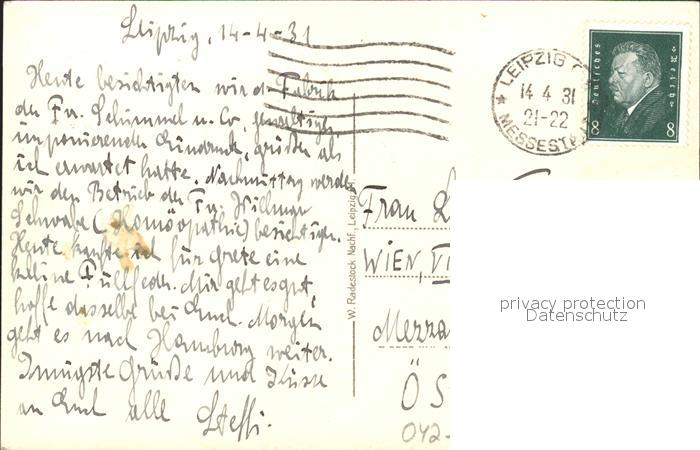 Leipzig, 14-4-31
Heute besichtigten wir d. Fabrik
der Fa. Schimmel u. Co, gewaltiger,
imponierender Eindruck, größer als
ich erwartet hatte. Nachmittag werden
wir den Betrieb der Fa. Willmar
Schwabe (Homöopathie) besichtigen.
Heute kaufte ich für Grete eine
kleine Füllfeder. Mir geht es gut,
hoffe dasselbe bei Euch. Morgen
geht es nach Hamburg weiter.
Innigste Grüße und Küsse
an Euch alle Steffi.
W. Radestock Nachf., Leipzig
LEIPZIG
14 4 31
21-22
* MESSEST
Deutsches Reich
8 8
Frau
WIEN, VI
Mezza
ÖS
042-
privacy protection
Datenschutz